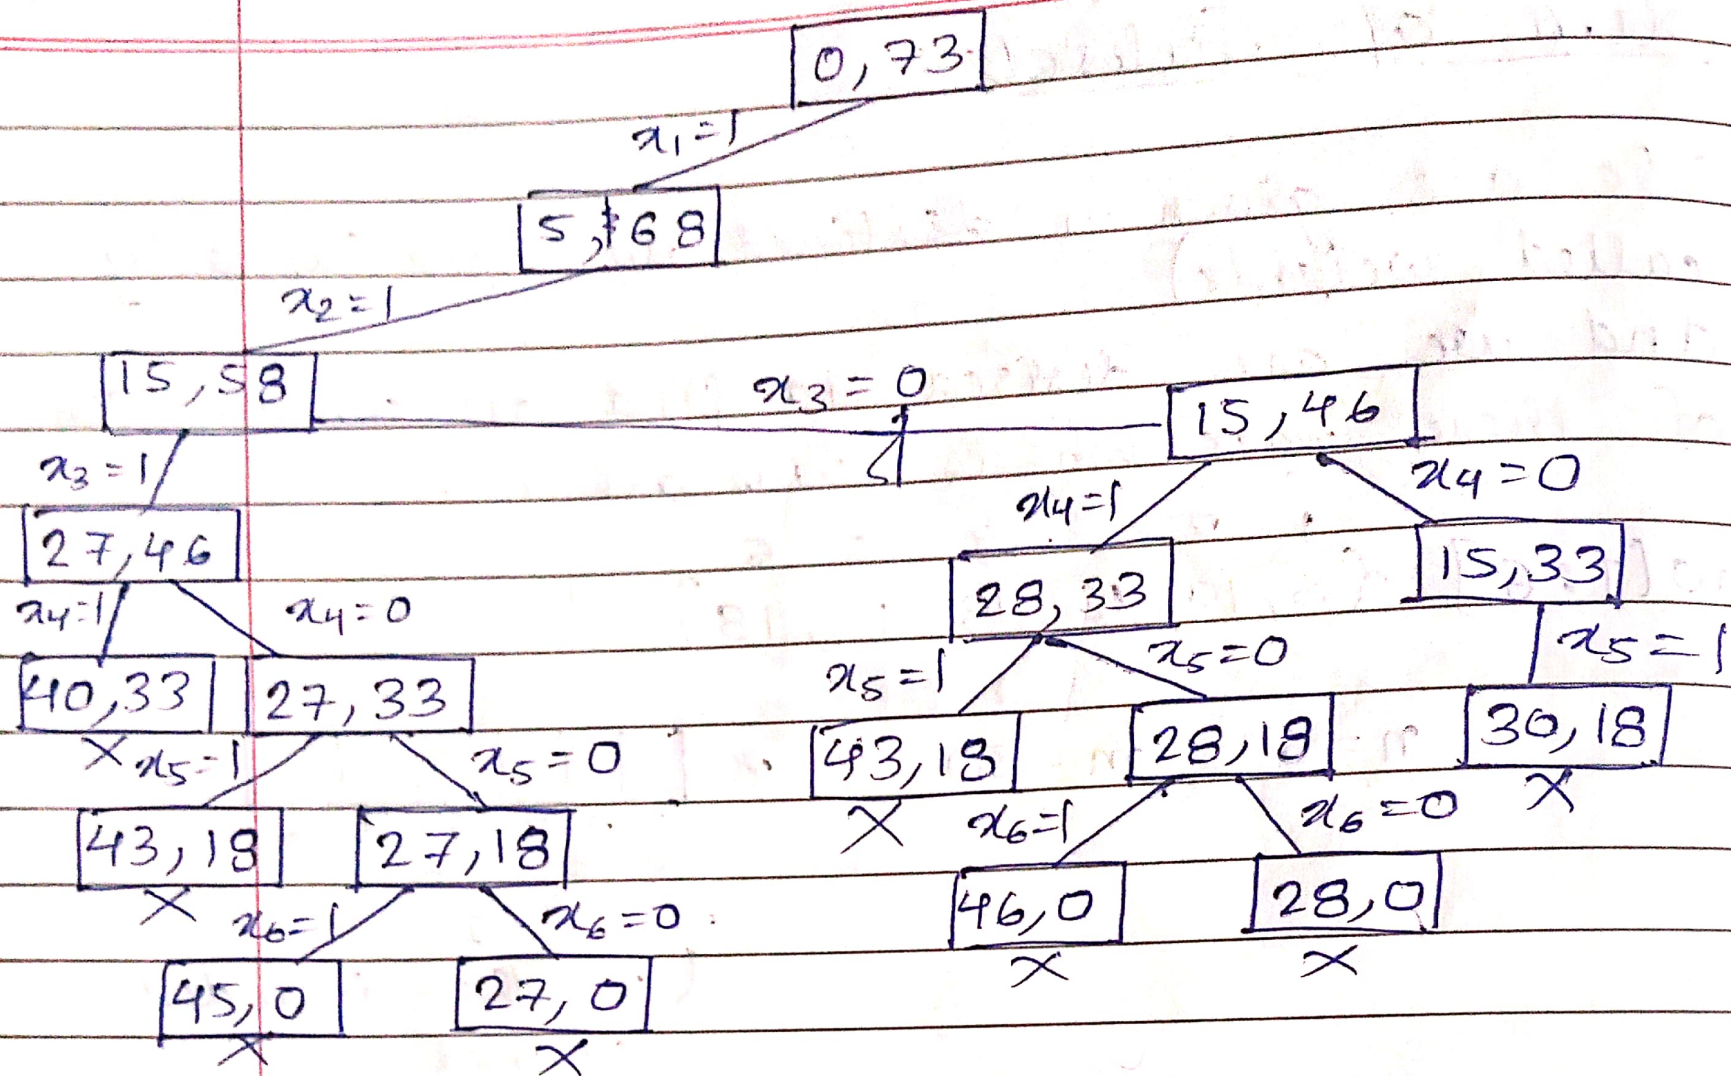 0, 73
x₁=1
5, 68
x₂=1
15, 58
x₃=0
15, 46
x₃=1
x₄=1
x₄=0
27, 46
28, 33
15, 33
x₄=1
x₄=0
x₅=1
x₅=0
x₅=1
40, 33
27, 33
43, 18
28, 18
30, 18
X
x₅=1
x₅=0
X
x₆=1
x₆=0
X
43, 18
27, 18
46, 0
28, 0
X
x₆=1
x₆=0
X
X
45, 0
27, 0
X
X